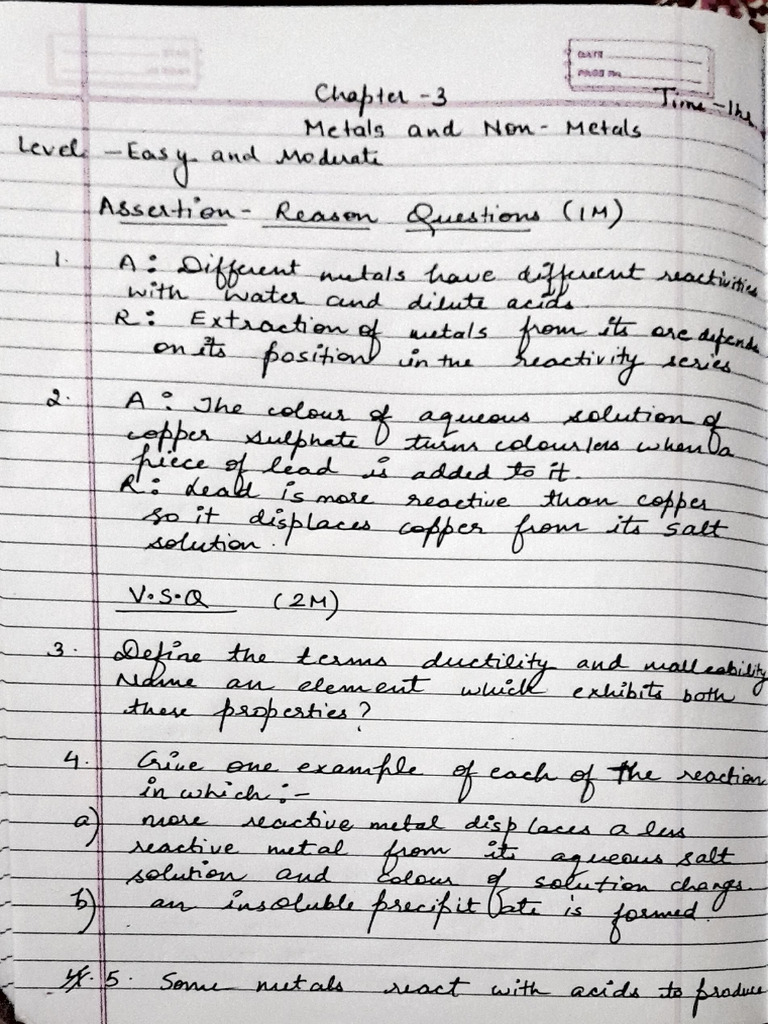 DATE
PAGE No.
Chapter - 3
Time - 1hr
Metals and Non - Metals
Level - Easy and Moderate
Assertion - Reason Questions (1M)
1. A : Different metals have different reactivities
with water and dilute acids
R : Extraction of metals from its ore depends
on its position in the reactivity series
2. A : The colour of aqueous solution of
copper sulphate turns colourless when a
piece of lead is added to it.
R : Lead is more reactive than copper
so it displaces copper from its salt
solution.
V.S.Q (2M)
3. Define the terms ductility and malleability
Name an element which exhibits both
these properties?
4. Give one example of each of the reaction
in which :-
a) more reactive metal displaces a less
reactive metal from its aqueous salt
solution and colour of solution change.
b) an insoluble precipitate is formed.
5. Some metals react with acids to produce